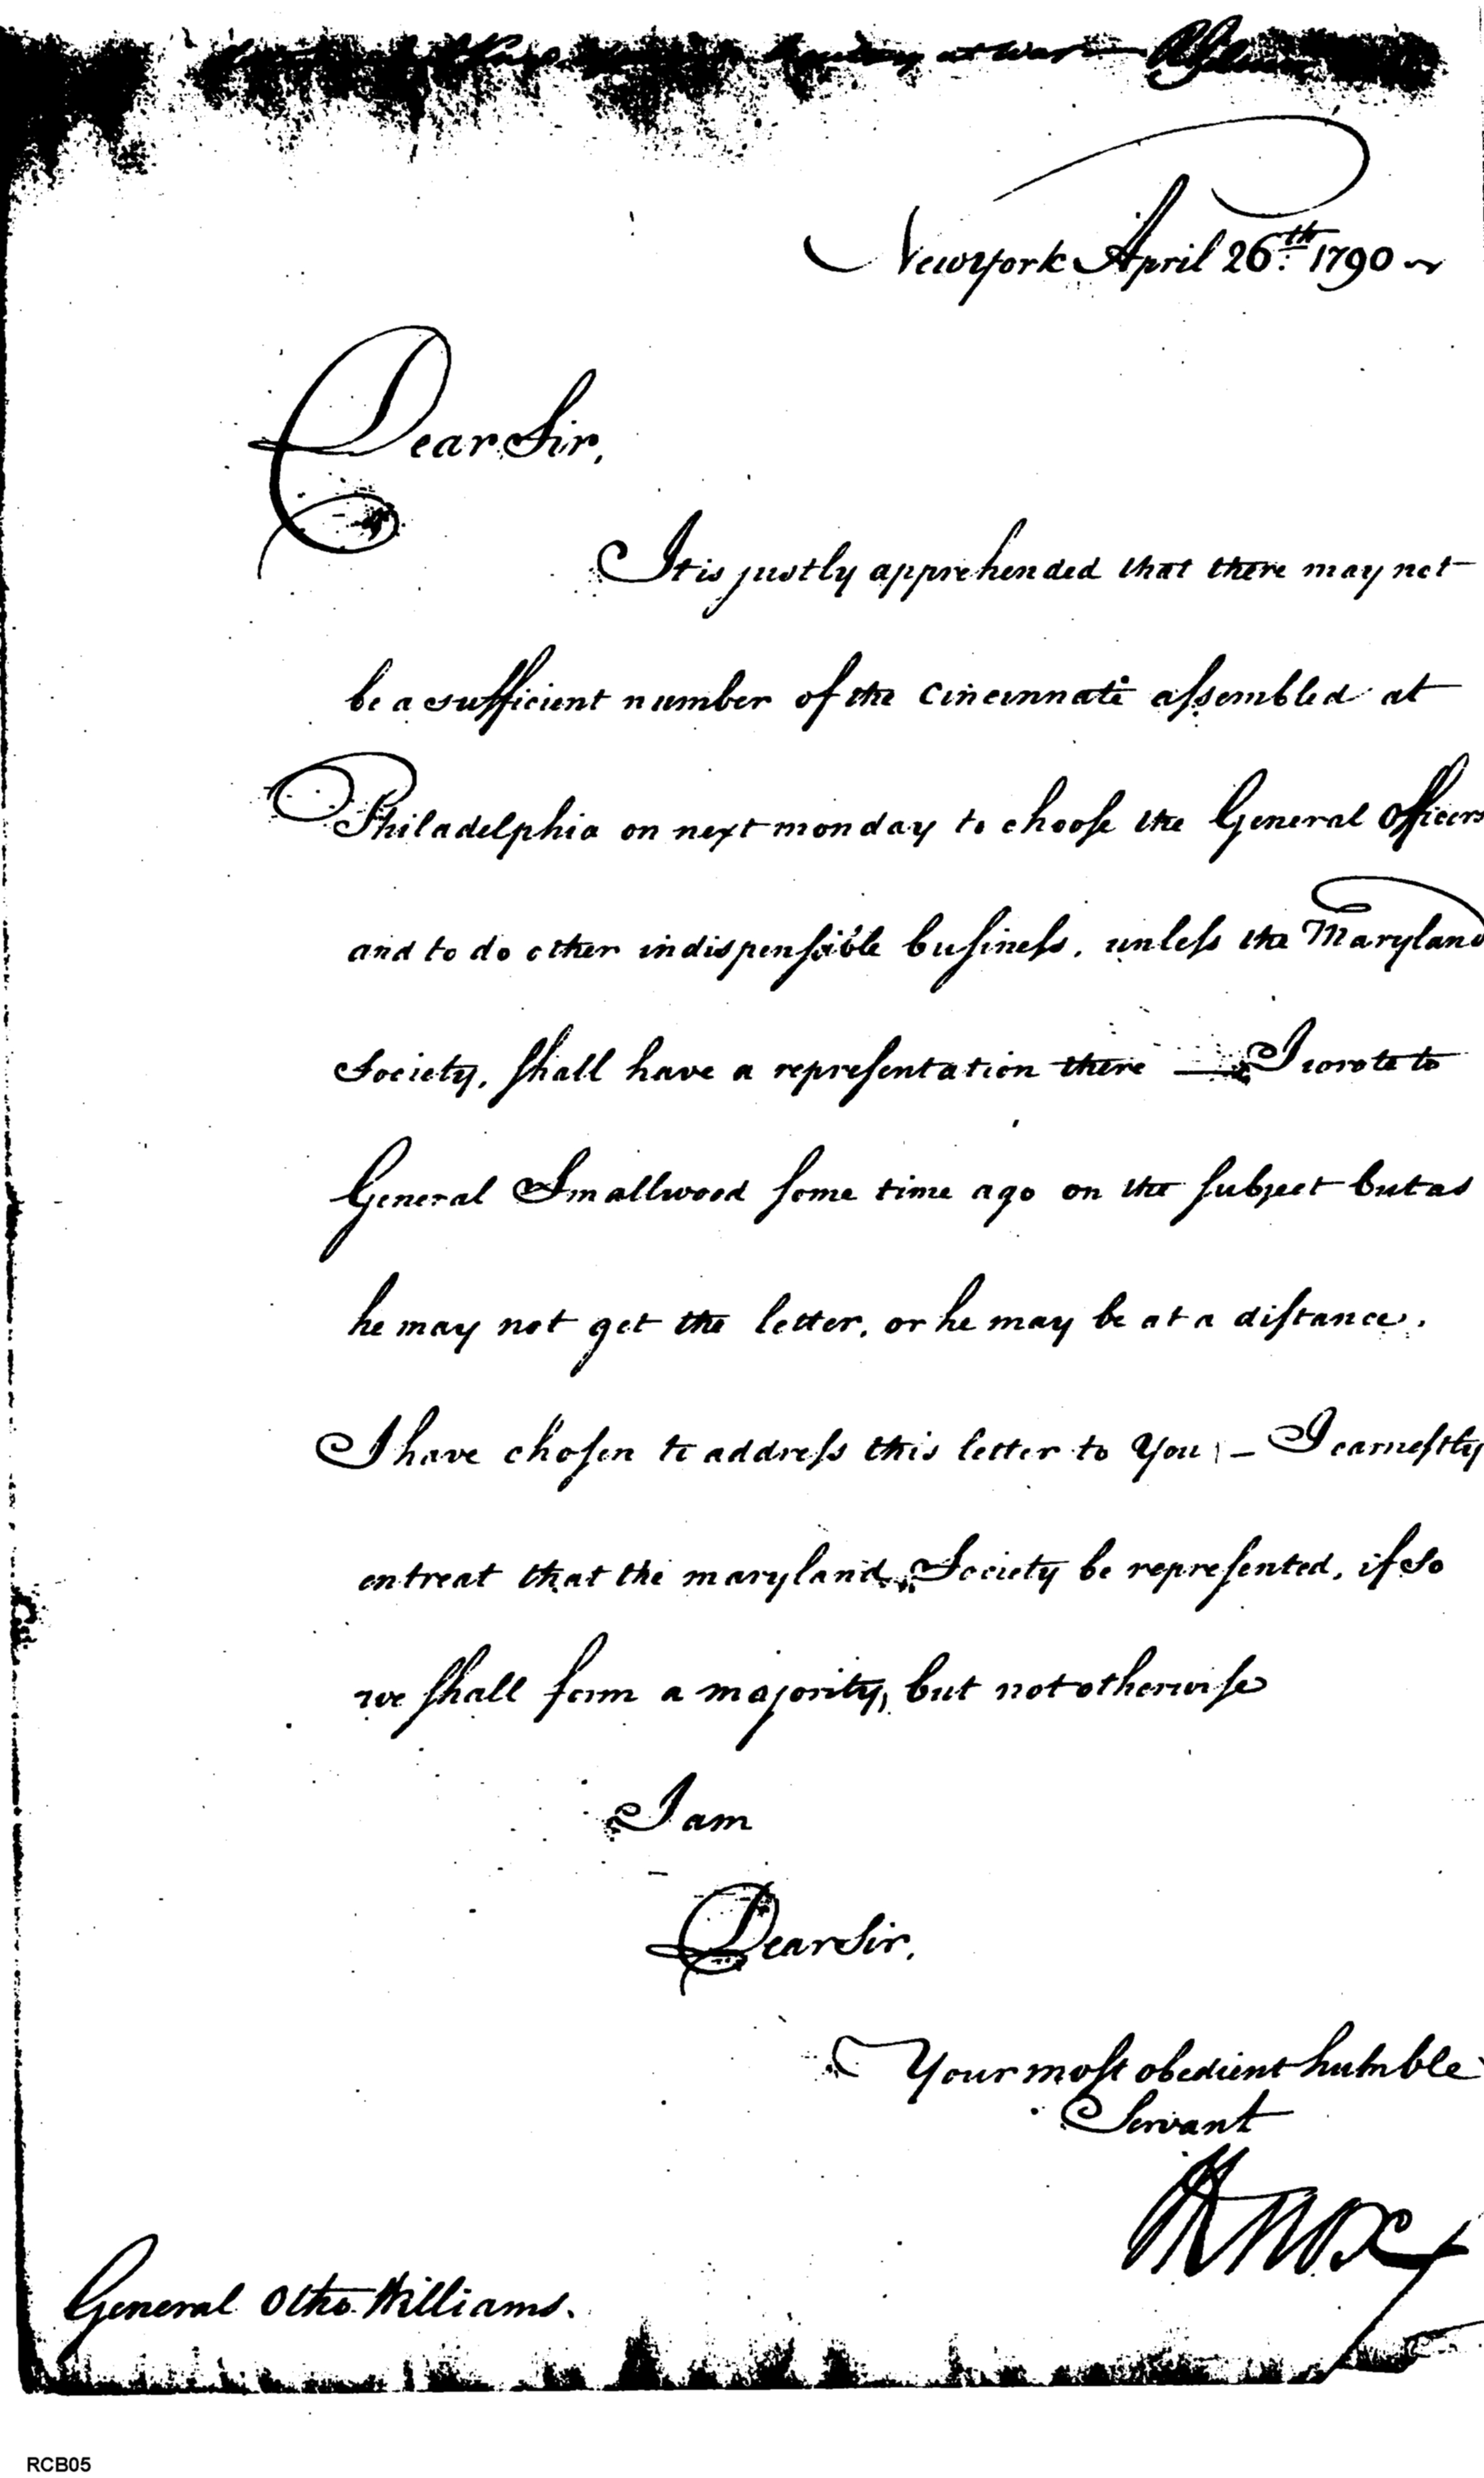 at War
New York April 26.th 1790
Dear Sir,
It is justly apprehended that there may not
be a sufficient number of the Cincinnati assembled at
Philadelphia on next monday to choose the General Officers
and to do other indispensible business, unless the Maryland
Society, shall have a representation there — I wrote to
General Smallwood some time ago on the subject but as
he may not get the letter, or he may be at a distance,
I have chosen to address this letter to You; – I earnestly
entreat that the maryland Society be represented, if so
we shall form a majority, but not otherwise
I am
Dear Sir,
Your most obedient humble
Servant
HKnox
General Otho Williams.
RCB05